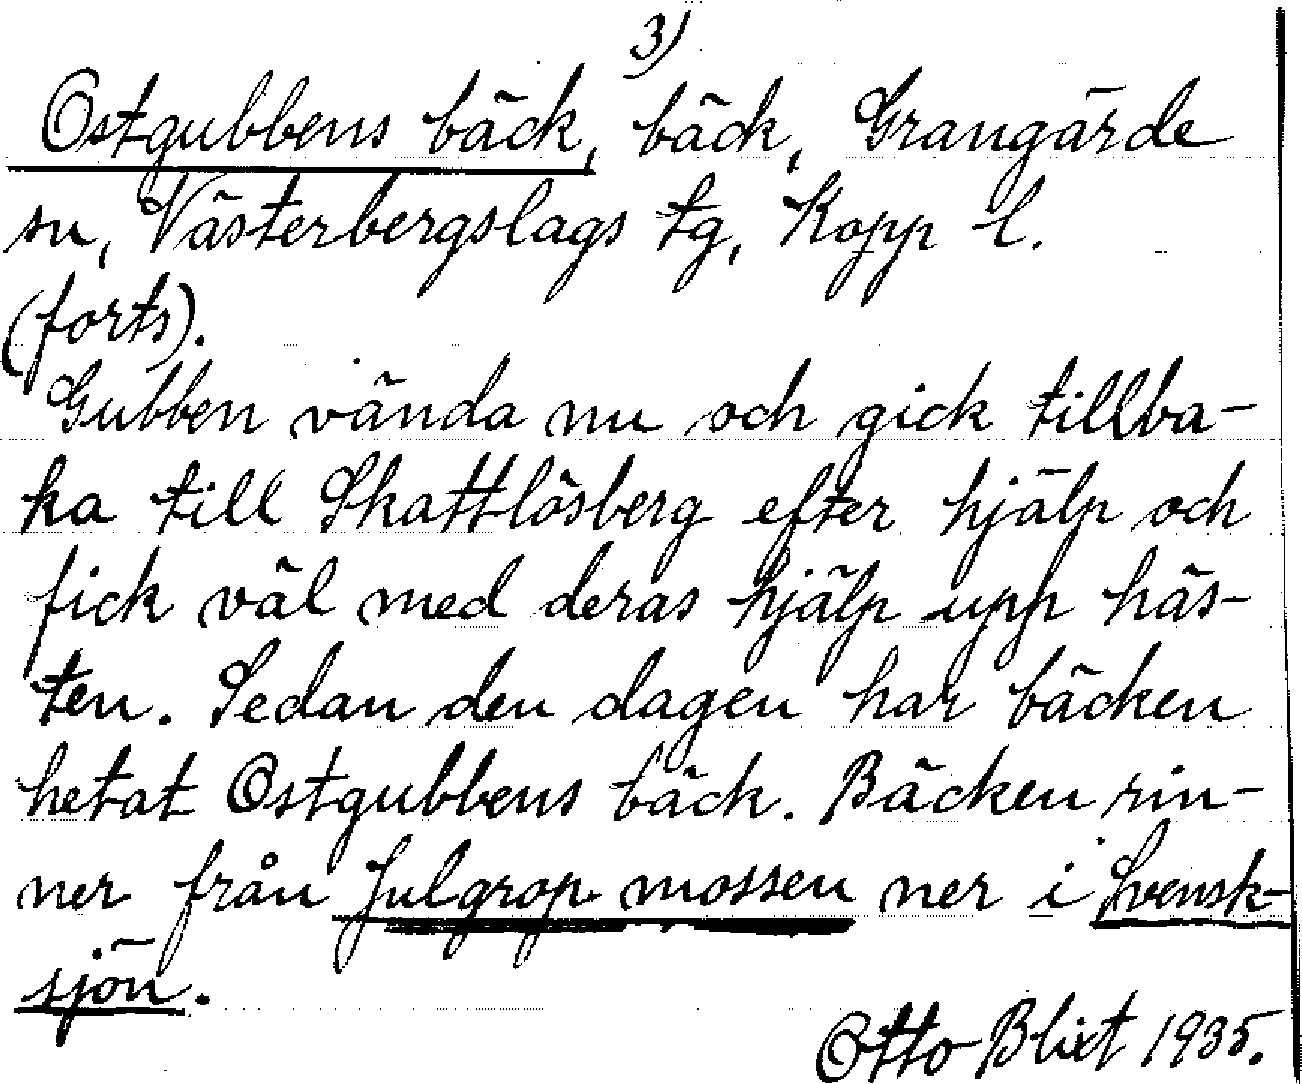 3)
Ostgubbens bäck, bäck, Grangärde
sn, Västerbergslags tg, Kopp l.
(forts).
Gubben vända nu och gick tillba-
ka till Skattlösberg efter hjälp och
fick väl med deras hjälp upp häs-
ten. Sedan den dagen har bäcken
hetat Ostgubbens bäck. Bäcken rin-
ner från Julgropmossen ner i Svensk-
sjön.
Otto Blixt 1935.